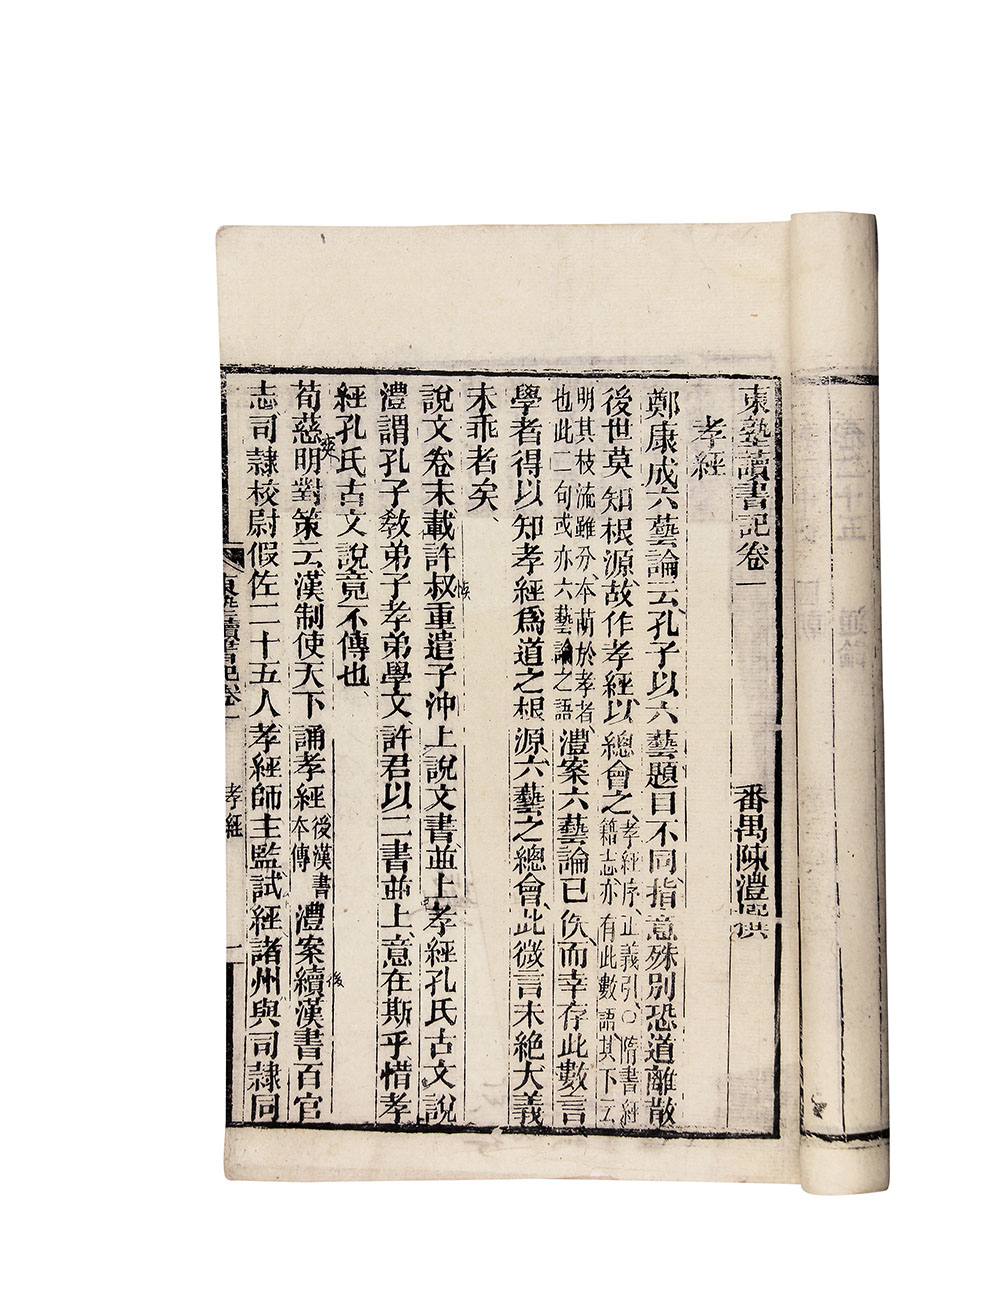 東塾讀書記卷一
番禺陳澧
孝經
鄭康成六藝論云孔子以六藝題目不同指意殊別恐道離散
後世莫知根源故作孝經以總會之孝經序正義引〇隋書經籍志亦有此數語其下云
明其枝流雖分本萌於孝者也此二句或亦六藝論之語澧案六藝論已佚而幸存此數言
學者得以知孝經爲道之根源六藝之總會此微言未絕大義
未乖者矣
說文卷末載許叔重遣子沖上說文書並上孝經孔氏古文說
澧謂孔子教弟子孝弟學文許君以二書並上意在斯乎惜孝
經孔氏古文說竟不傳也
荀慈明對策云漢制使天下誦孝經後漢書本傳澧案續漢書百官
志司隸校尉假佐二十五人孝經師主監試經諸州與司隸同
爽
後
東塾讀書記卷一
孝經
一